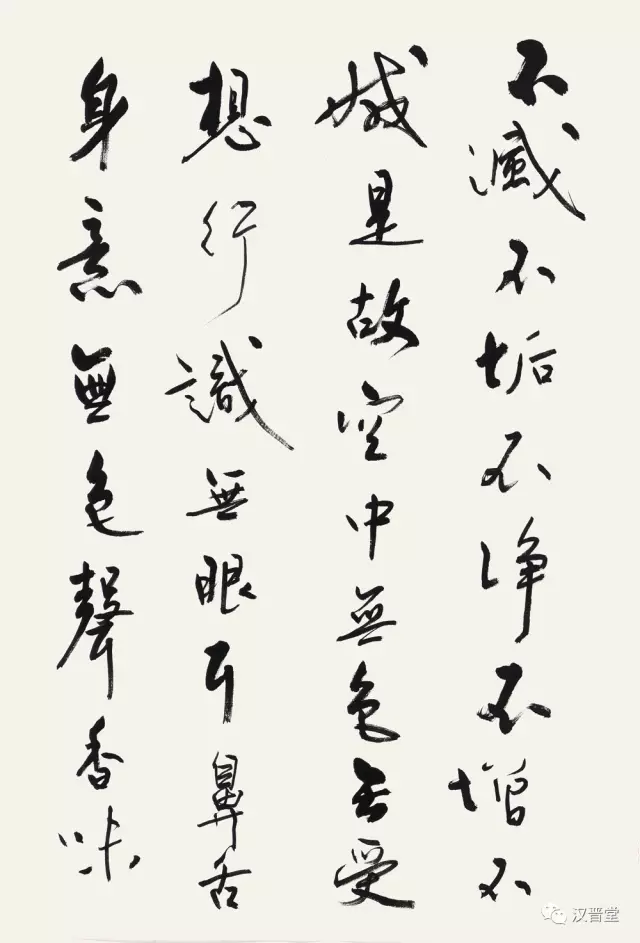 不滅不垢不淨不增不
減是故空中無色無受
想行識無眼耳鼻舌
身意無色聲香味
汉晋堂